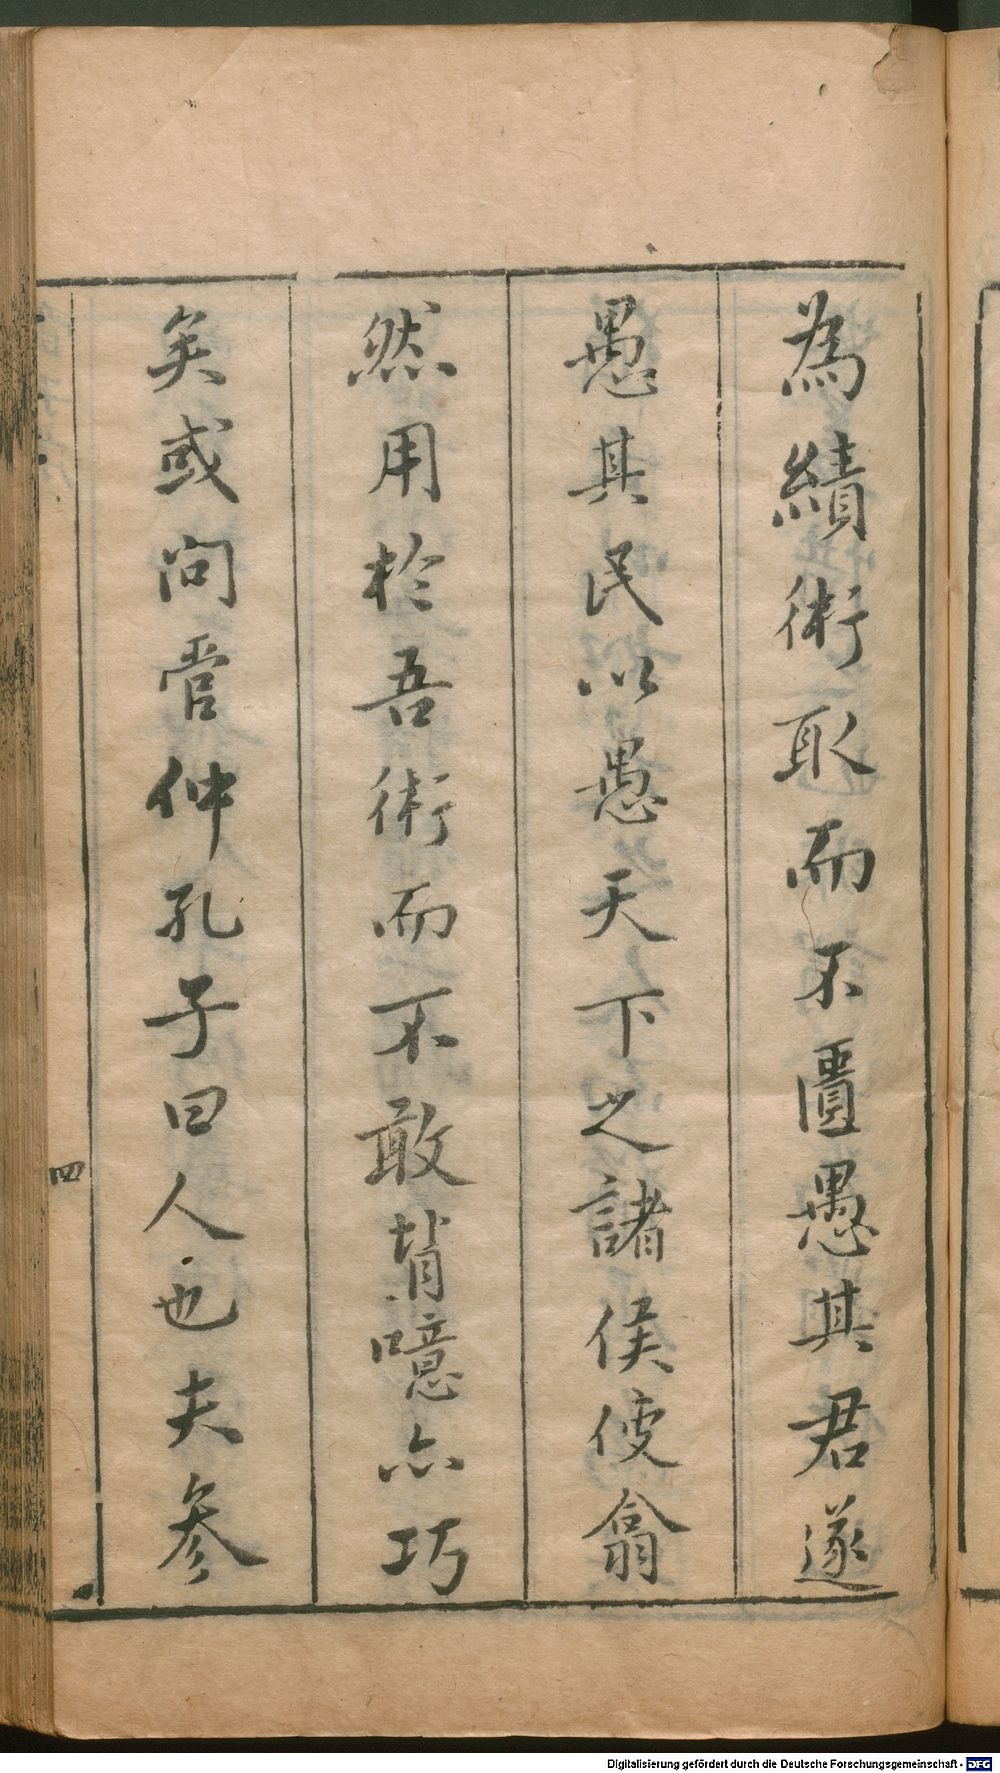 為績術取而不匱愚其君遂
愚其民以愚天下之諸侯使翕
然用於吾術而不敢背噫亦巧
矣或问管仲孔子曰人也夫参
四
Digitalisierung gefördert durch die Deutsche Forschungsgemeinschaft - DFG